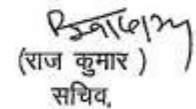 (राज कुमार )
सचिव,